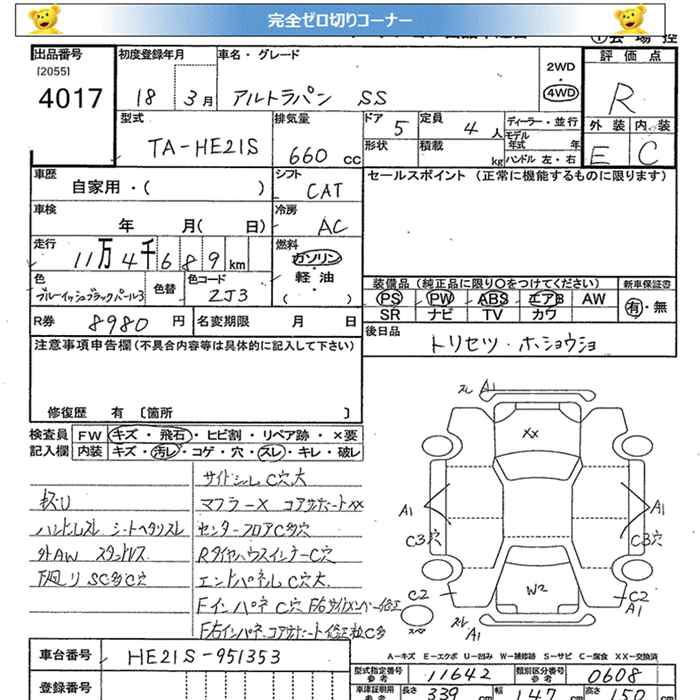 完全ゼロ切りコーナー
出品番号
[2055]
4017
初度登録年月
18 3月
車名・グレード
アルトラパン SS
2WD
・
4WD
評価点
R
外装 内装
E C
型式
TA-HE21S
排気量
660 cc
ドア 5
定員 4 人
ディーラー・並行
モデル年式 年
形状
積載 kg
ハンドル 左・右
車歴
自家用・( )
シフト
CAT
セールスポイント (正常に機能するものに限ります)
車検
年 月( 日)
冷房
AC
走行
11万4千689km
燃料
ガソリン
軽・油
( )
色
ブルーイッシュブラックパール3
色替
色コード
ZJ3
装備品 (純正品に限り〇をつけてください) 新車保証書
PS PW ABS エアB AW
SR ナビ TV カワ
有・無
R券 8980 円
名変期限 月 日
後日品
トリセツ・ホショウショ
注意事項申告欄 (不具合内容等は具体的に記入して下さい)
修復歴 有 [箇所 ]
検査員記入欄
FW キズ・飛石・ヒビ割・リペア跡・×要
内装 キズ・汚レ・コゲ・穴・スレ・キレ・破レ
サイドシルC穴大
キズU
マフラーX コアサポートXX
ハンドルスレ シートヘタリスレ
センターフロアC多穴
外AW スタッドレス
RタイヤハウスインナーC穴
下廻リ SC多C穴
エンドパネルC穴大
Fインパネ C穴
スレ A1
XX
A1
C3穴
A1
C3穴
W2
C2
C2
A1
スレ A1
A-キズ E-エクボ U-凹み W-補修跡 S-サビ C-腐食 XX-交換済
車台番号 HE21S-951353
型式指定番号 参考 11642
類別区分番号 参考 0608
登録番号
車庫証明用 参考
長さ 339 cm
幅 147 cm
高さ 150 cm